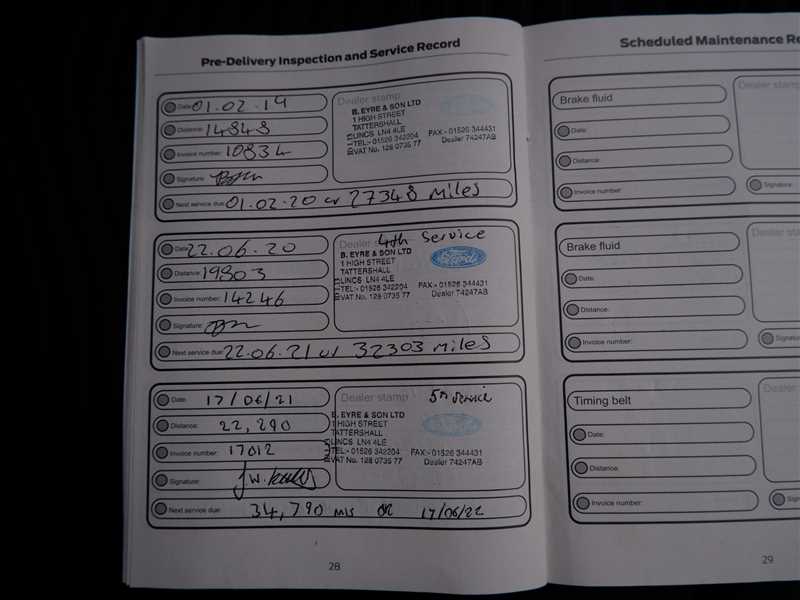 Pre-Delivery Inspection and Service Record
Date: 01.02.19
Distance: 14848
Invoice number: 10834
Signature:
Next service due: 01.02.20 or 27348 Miles
Dealer stamp
B. EYRE & SON LTD
1 HIGH STREET
TATTERSHALL
LINCS LN4 4LE
TEL:- 01526 342204 FAX:- 01526 344431
VAT No. 128 0735 77 Dealer 74247AB
Date: 22.06.20
Distance: 19803
Invoice number: 14246
Signature:
Next service due: 22.06.21 or 32303 Miles
Dealer stamp 4th Service
B. EYRE & SON LTD
1 HIGH STREET
TATTERSHALL
LINCS LN4 4LE
TEL:- 01526 342204 FAX:- 01526 344431
VAT No. 128 0735 77 Dealer 74247AB
Ford
Date: 17/06/21
Distance: 22,290
Invoice number: 17012
Signature:
Next service due: 34,790 mls or 17/06/22
Dealer stamp 5th Service
B. EYRE & SON LTD
1 HIGH STREET
TATTERSHALL
LINCS LN4 4LE
TEL:- 01526 342204 FAX:- 01526 344431
VAT No. 128 0735 77 Dealer 74247AB
28
Scheduled Maintenance Re
Brake fluid
Date:
Distance:
Invoice number:
Dealer stamp
Signature:
Brake fluid
Date:
Distance:
Invoice number:
Dealer st
Signature:
Timing belt
Date:
Distance:
Invoice number:
Dealer
Signa
29